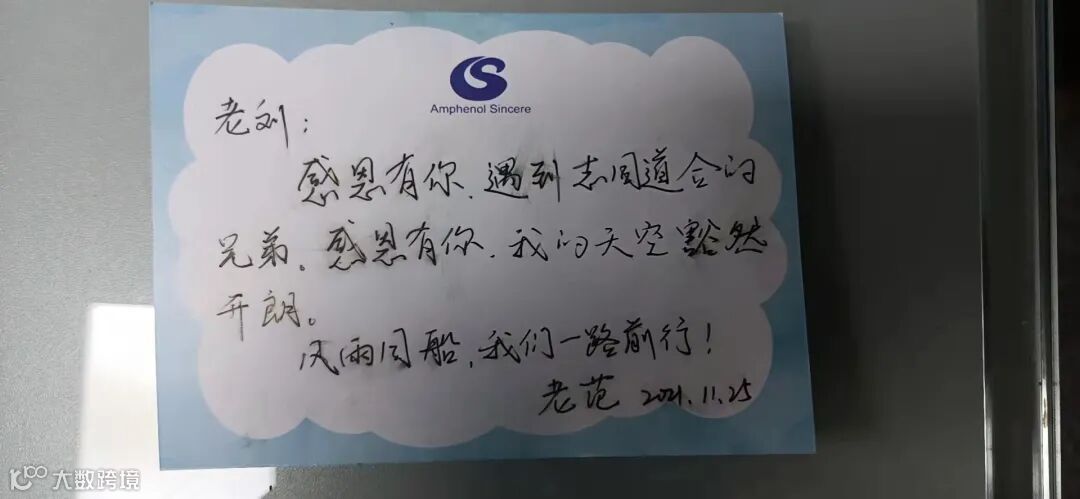 Amphenol Sincere
老刘：
感恩有你、遇到志同道合的
兄弟。感恩有你、我的天空豁然
开朗。
风雨同船，我们一路前行！
老范 2021.11.25
大数跨境